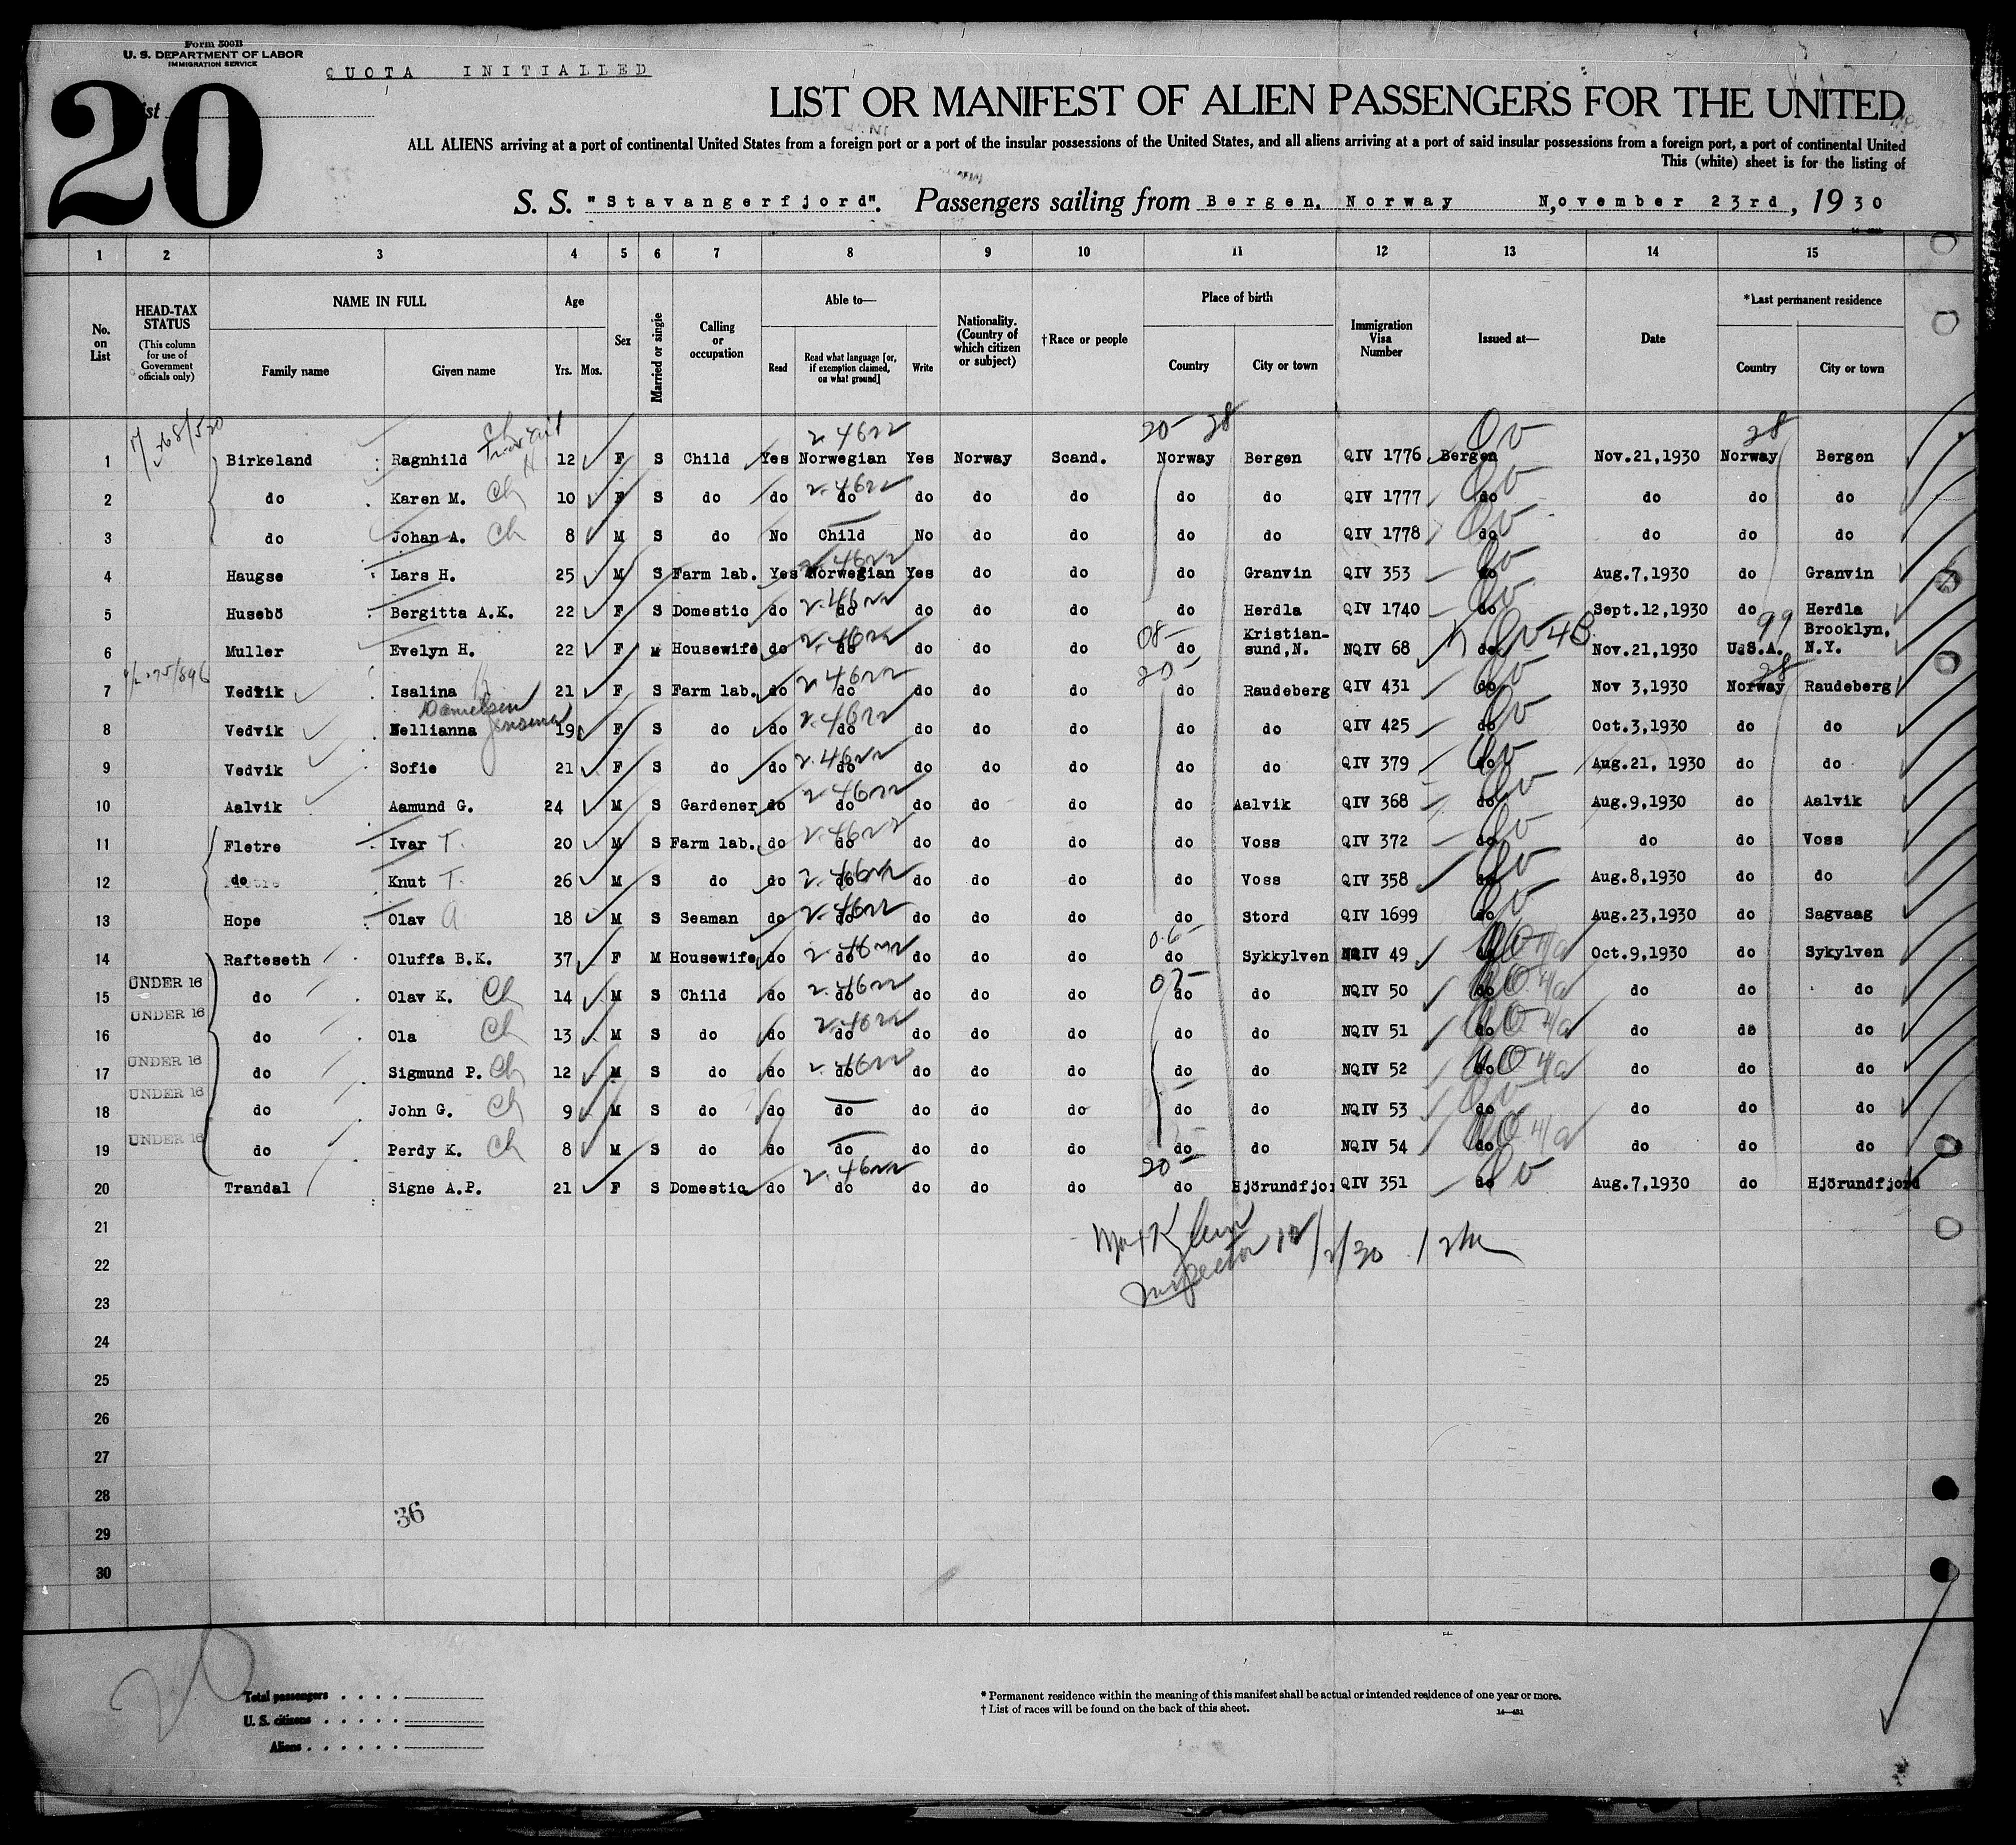 Form 500B
U. S. DEPARTMENT OF LABOR
IMMIGRATION SERVICE
QUOTA INITIALLED
20
LIST OR MANIFEST OF ALIEN PASSENGERS FOR THE UNITED
ALL ALIENS arriving at a port of continental United States from a foreign port or a port of the insular possessions of the United States, and all aliens arriving at a port of said insular possessions from a foreign port, a port of continental United
This (white) sheet is for the listing of
S. S. "Stavangerfjord". Passengers sailing from Bergen, Norway November 23rd, 1930
1 2 3 4 5 6 7 8 9 10 11 12 13 14 15
No. on List
HEAD-TAX STATUS
(This column for use of Government officials only)
NAME IN FULL
Family name Given name
Age
Yrs. Mos.
Sex
Married or single
Calling or occupation
Able to—
Read
Read what language [or, if exemption claimed, on what ground]
Write
Nationality. (Country of which citizen or subject)
†Race or people
Place of birth
Country City or town
Immigration Visa Number
Issued at—
Date
*Last permanent residence
Country City or town
1 Birkeland Ragnhild 12 F S Child Yes Norwegian Yes Norway Scand. Norway Bergen QIV 1776 Bergen Nov.21,1930 Norway Bergen
2 do Karen M. Ch 10 F S do do do do do do do do QIV 1777 do do do do
3 do Johan A. Ch 8 M S do No Child No do do do do QIV 1778 do do do do
4 Haugse Lars H. 25 M S Farm lab. Yes Norwegian Yes do do do Granvin QIV 353 do Aug.7,1930 do Granvin
5 Husebö Bergitta A.K. 22 F S Domestic do do do do do do Herdla QIV 1740 do Sept.12,1930 do Herdla
6 Muller Evelyn H. 22 F M Housewife do do do do do do Kristian-sund,N. NQIV 68 do Nov.21,1930 U.S.A. Brooklyn, N.Y.
7 Vedvik Isalina 21 F S Farm lab. do do do do do do Raudeberg QIV 431 do Nov 3,1930 Norway Raudeberg
Danielsen
8 Vedvik Nellianna 19 F S do do do do do do do do QIV 425 do Oct.3,1930 do do
9 Vedvik Sofie 21 F S do do do do do do do do QIV 379 do Aug.21, 1930 do do
10 Aalvik Aamund G. 24 M S Gardener do do do do do do Aalvik QIV 368 do Aug.9,1930 do Aalvik
11 Fletre Ivar T. 20 M S Farm lab. do do do do do do Voss QIV 372 do do do Voss
12 do Knut T. 26 M S do do do do do do do Voss QIV 358 do Aug.8,1930 do do
13 Hope Olav A 18 M S Seaman do do do do do do Stord QIV 1699 do Aug.23,1930 do Sagvaag
14 Rafteseth Oluffa B.K. 37 F M Housewife do do do do do do Sykkylven NQIV 49 do Oct.9,1930 do Sykylven
UNDER 16
15 do Olav K. Ch 14 M S Child do do do do do do do NQIV 50 do do do do
UNDER 16
16 do Ola Ch 13 M S do do do do do do do do NQIV 51 do do do do
UNDER 16
17 do Sigmund P. Ch 12 M S do do do do do do do do NQIV 52 do do do do
UNDER 16
18 do John G. Ch 9 M S do do do do do do do do NQIV 53 do do do do
UNDER 16
19 do Perdy K. Ch 8 M S do do do do do do do do NQIV 54 do do do do
20 Trandal Signe A.P. 21 F S Domestic do do do do do do Hjörundfjor QIV 351 do Aug.7,1930 do Hjörundfjord
21
22
23
24
25
26
27
28
29
30
Inspector
36
20
Total passengers
U. S. citizens
Aliens
* Permanent residence within the meaning of this manifest shall be actual or intended residence of one year or more.
† List of races will be found on the back of this sheet.
14—431